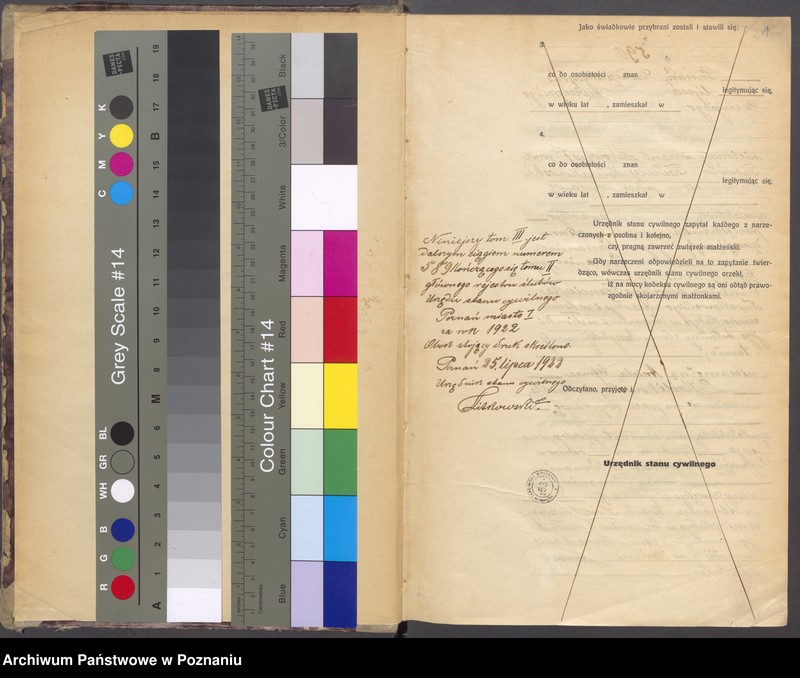 DANES
PICTA
.COM
Grey Scale #14
R G B WH GR BL C M Y K
A 1 2 3 4 5 6 M 8 9 10 11 12 13 14 15 B 17 18 19
DANES
PICTA
.COM
Colour Chart #14
Blue Cyan Green Yellow Red Magenta White 3/Color Black
Inches
Centimetres
Jako świadkowie przybrani zostali i stawili się:
3.
co do osobistości znan
legitymując się,
w wieku lat , zamieszkał w
4.
co do osobistości znan
legitymując się,
w wieku lat , zamieszkał w
Urzędnik stanu cywilnego zapytał każdego z narze-
czonych z osobna i kolejno,
czy pragną zawrzeć związek małżeński.
Gdy narzeczeni odpowiedzieli na to zapytanie twier-
dząco, wówczas urzędnik stanu cywilnego orzekł,
iż na mocy kodeksu cywilnego są oni odtąd prawo-
zgodnie skojarzonymi małżonkami.
Niniejszy tom III jest
dalszym ciągiem numerem
589 kończącego się tomu II
głównego rejestru ślubów
Urzędu stanu cywilnego
Poznań miasto I
za rok 1922
Obok stojący druk skreślono.
Poznań 25 lipca 1922
Urzędnik stanu cywilnego
Odczytano, przyjęto i
Urzędnik stanu cywilnego
Archiwum Państwowe w Poznaniu